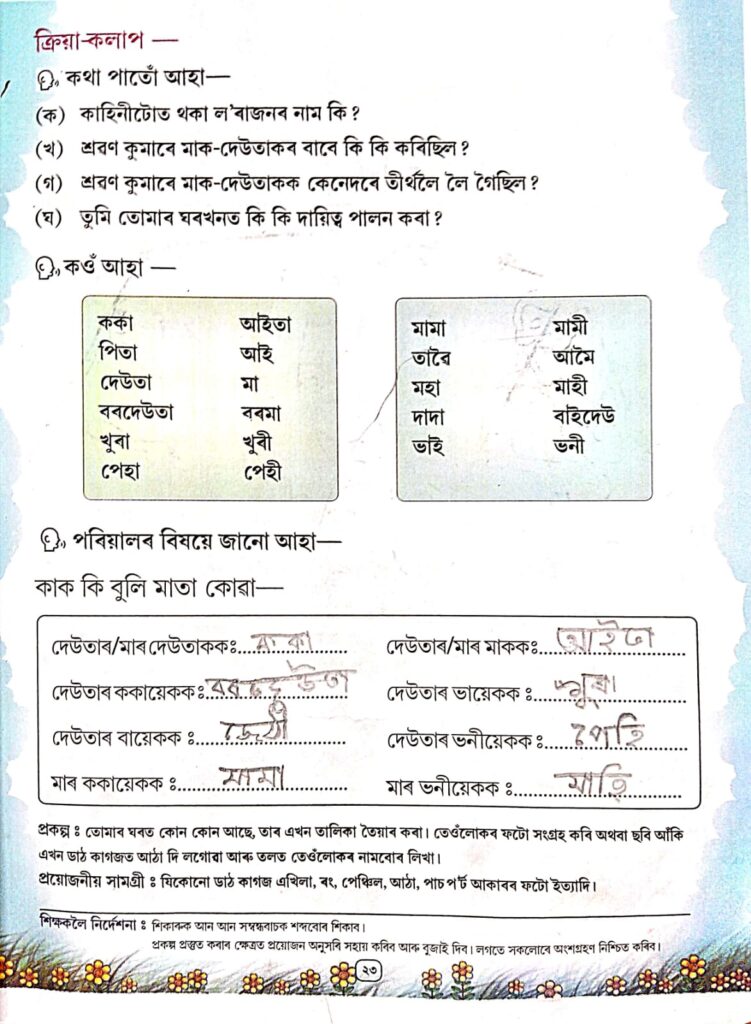 ক্ৰিয়া-কলাপ —
কথা পাতোঁ আহা—
(ক) কাহিনীটোত থকা ল'ৰাজনৰ নাম কি ?
(খ) শ্ৰৱণ কুমাৰে মাক-দেউতাকৰ বাবে কি কি কৰিছিল ?
(গ) শ্ৰৱণ কুমাৰে মাক-দেউতাকক কেনেদৰে তীৰ্থলৈ লৈ গৈছিল ?
(ঘ) তুমি তোমাৰ ঘৰখনত কি কি দায়িত্ব পালন কৰা ?
কওঁ আহা —
ককা আইতা
পিতা আই
দেউতা মা
বৰদেউতা বৰমা
খুৰা খুৰী
পেহা পেহী
মামা মামী
তাৱৈ আমৈ
মহা মাহী
দাদা বাইদেউ
ভাই ভনী
পৰিয়ালৰ বিষয়ে জানো আহা—
কাক কি বুলি মাতা কোৱা—
দেউতাৰ/মাৰ দেউতাকক ঃ ককা দেউতাৰ/মাৰ মাকক ঃ আইতা
দেউতাৰ ককায়েকক ঃ বৰদেউতা দেউতাৰ ভায়েকক ঃ খুৰা
দেউতাৰ বায়েকক ঃ জেঠী দেউতাৰ ভনীয়েকক ঃ পেহি
মাৰ ককায়েকক ঃ মামা মাৰ ভনীয়েকক ঃ মাহি
প্ৰকল্প ঃ তোমাৰ ঘৰত কোন কোন আছে, তাৰ এখন তালিকা তৈয়াৰ কৰা। তেওঁলোকৰ ফটো সংগ্ৰহ কৰি অথবা ছবি আঁকি
এখন ডাঠ কাগজত আঠা দি লগোৱা আৰু তলত তেওঁলোকৰ নামবোৰ লিখা।
প্ৰয়োজনীয় সামগ্ৰী ঃ যিকোনো ডাঠ কাগজ এখিলা, ৰং, পেঞ্চিল, আঠা, পাচপ'ৰ্ট আকাৰৰ ফটো ইত্যাদি।
শিক্ষকলৈ নিৰ্দেশনা ঃ শিকাৰুক আন আন সম্বন্ধবাচক শব্দবোৰ শিকাব।
প্ৰকল্প প্ৰস্তুত কৰাৰ ক্ষেত্ৰত প্ৰয়োজন অনুসৰি সহায় কৰিব আৰু বুজাই দিব। লগতে সকলোৰে অংশগ্ৰহণ নিশ্চিত কৰিব।
২৩